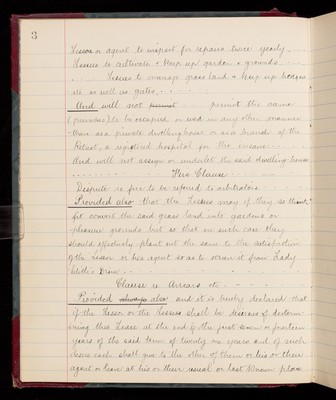 3
Lessor or agent to inspect for repairs twice yearly.
Lessees to cultivate & keep up garden & grounds . . .
. . . . Lessees to manage grass land & keep up hedges
etc as well as gates . . . . .
And will not permit . . . permit the same
(premises) to be occupied or used in any other manner
than as a private dwellinghouse or as a branch of the
Retreat, a registered hospital for the insane . . .
And will not assign or underlet the said dwelling house
Fire Clause
Dispute re fire to be referred to arbitrators
Provided also that the Lessees may if they so think
fit convert the said grass land into gardens or
pleasure grounds but so that in such case they
should effectively plant out the same to the satisfaction
of the Lessor or his agent so as to screen it from Lady
Drive
Clause re Arrears etc
Provided always also and it is hereby declared that
if the Lessor or the Lessees shall be desirous of determ-
ining this Lease at the end of the first seven or fourteen
years of the said term of twenty one years and of such
desire each shall give to the other of them or his or their
agent or leave at his or their usual or last known place